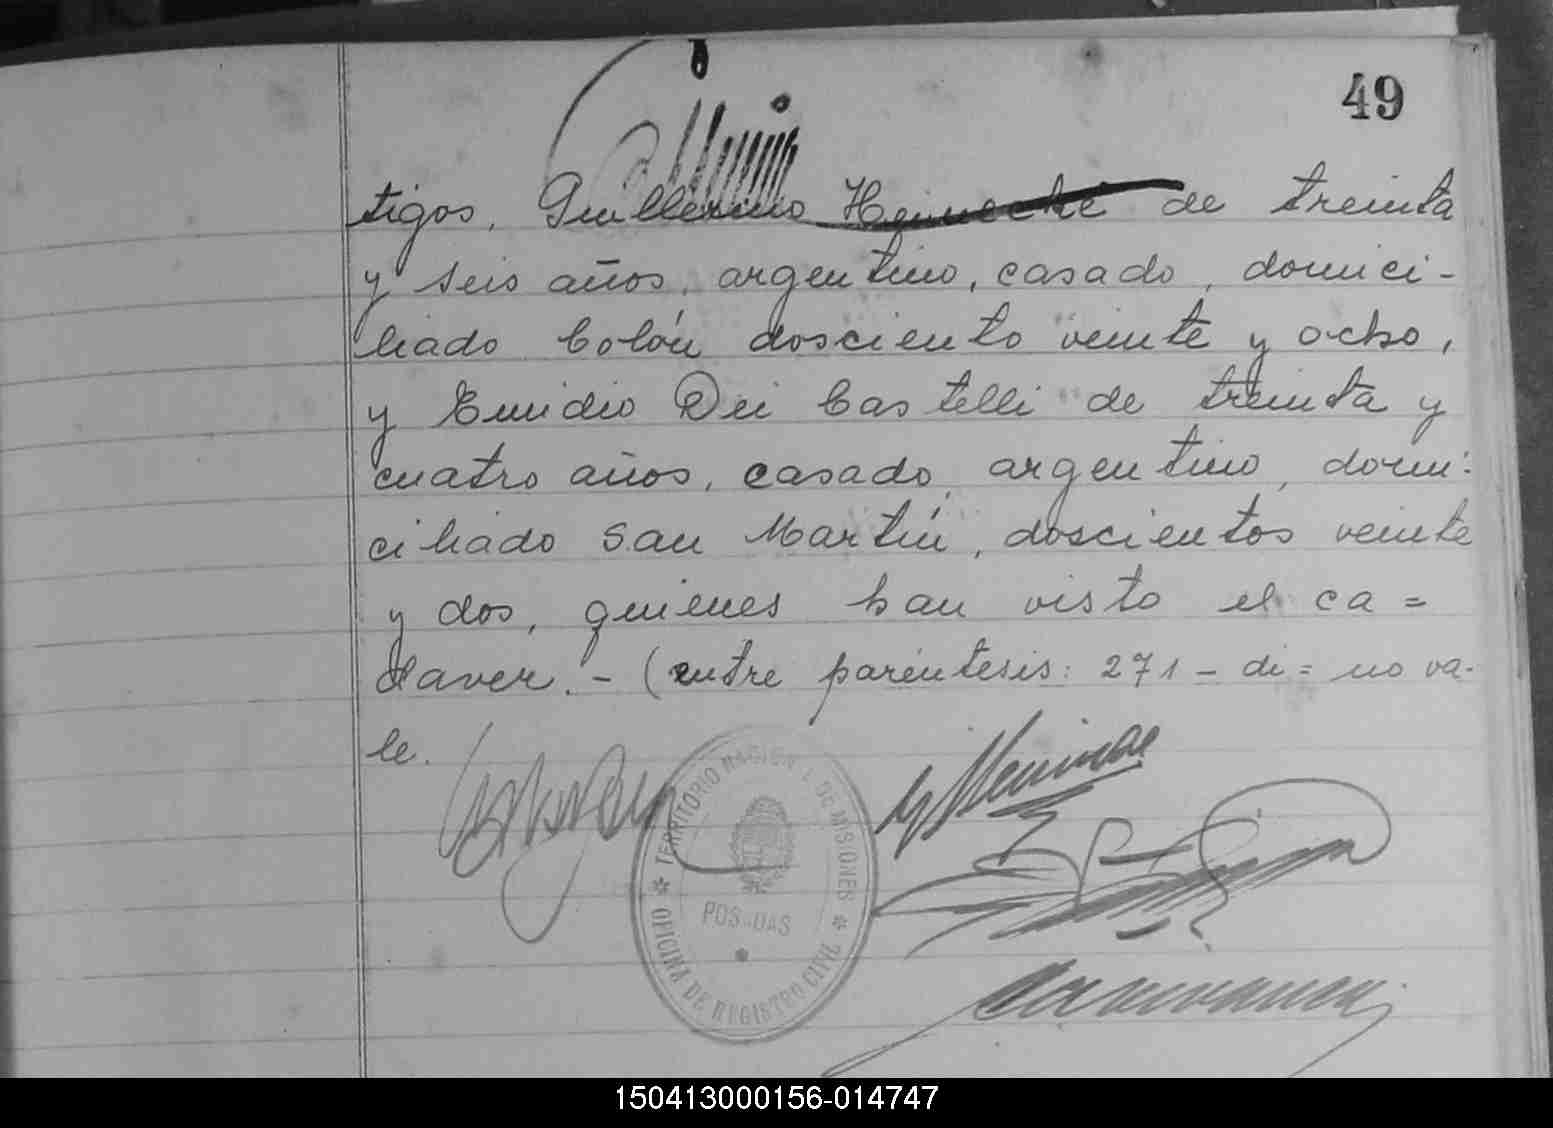 49
tigos, Guillermo Heinecke de treinta
y seis años, argentino, casado, domici-
liado Colón dosciento veinte y ocho,
y Emidio Dei Castelli de treinta y
cuatro años, casado, argentino, domi-
ciliado San Martín, doscientos veinte
y dos, quienes han visto el ca=
daver.- (entre paréntesis: 271 - di= no va-
le.
TERRITORIO NACIONAL DE MISIONES
POSADAS
OFICINA DE REGISTRO CIVIL
150413000156-014747